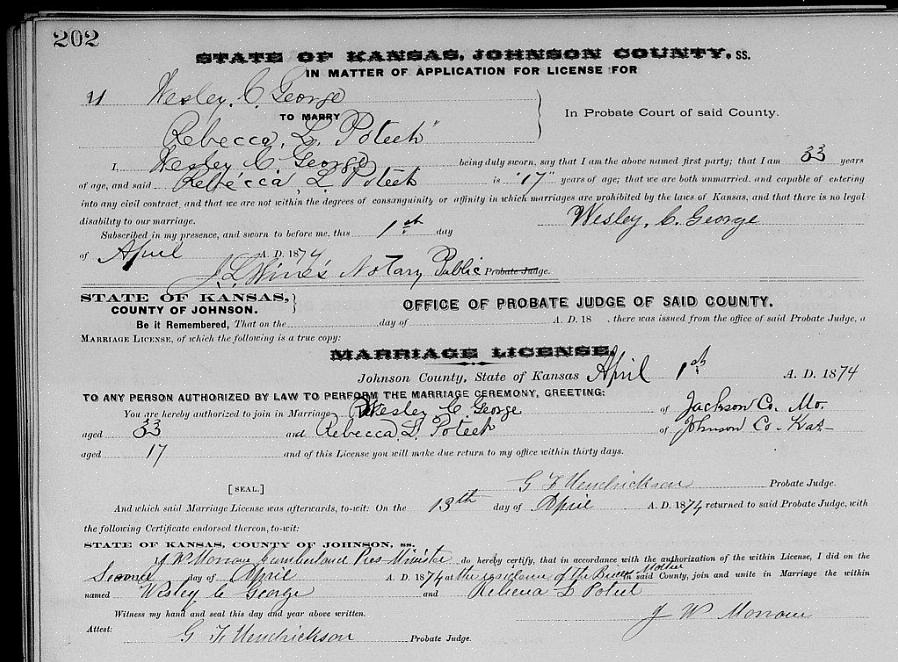 202
STATE OF KANSAS, JOHNSON COUNTY, SS.
IN MATTER OF APPLICATION FOR LICENSE FOR
Wesley. C. George
TO MARRY
In Probate Court of said County.
Rebecca, L. Poteet"
I, Wesley C George being duly sworn, say that I am the above named first party; that I am 33 years
of age, and said Rebecca, L. Poteet is "17" years of age; that we are both unmarried, and capable of entering
into any civil contract, and that we are not within the degrees of consanguinity or affinity in which marriages are prohibited by the laws of Kansas, and that there is no legal
disability to our marriage. Wesley, C. George
Subscribed in my presence, and sworn to before me, this 1st day
of April A. D. 1874
J. L. Wines Notary Public Probate Judge.
STATE OF KANSAS,
COUNTY OF JOHNSON.
OFFICE OF PROBATE JUDGE OF SAID COUNTY.
Be it Remembered, That on the day of A. D. 18 , there was issued from the office of said Probate Judge, a
MARRIAGE LICENSE, of which the following is a true copy:
MARRIAGE LICENSE.
Johnson County, State of Kansas April 1st A. D. 1874
TO ANY PERSON AUTHORIZED BY LAW TO PERFORM THE MARRIAGE CEREMONY, GREETING:
You are hereby authorized to join in Marriage Wesley C. George of Jackson Co. Mo.
aged 33 and Rebecca L. Poteet of Johnson Co- Kas-
aged 17 and of this License you will make due return to my office within thirty days.
G F Hendrickson Probate Judge.
[SEAL.]
And which said Marriage License was afterwards, to-wit: On the 13th day of April A. D. 1874 returned to said Probate Judge, with
the following Certificate endorsed thereon, to-wit:
STATE OF KANSAS, COUNTY OF JOHNSON, ss.
J W Morrow Cumberland Pres Minister do hereby certify, that in accordance with the authorization of the within License, I did on the
Second day of April A. D. 1874 at the residence of the Brides Mother in said County, join and unite in Marriage the within
named Wesley C George and Rebecca L Poteet
Witness my hand and seal this day and year above written. J W Morrow
Attest: G F Hendrickson Probate Judge.